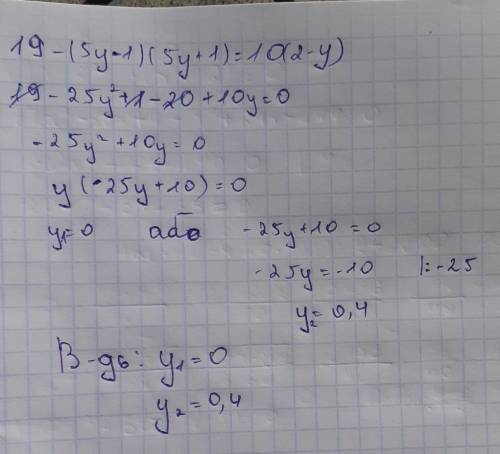 19-(5y-1)(5y+1)=10(2-y)
19-25y²+1-20+10y=0
-25y²+10y=0
y(-25y+10)=0
y₁=0 або -25y+10=0
-25y=-10 |:-25
y₂=0,4
В-дь: y₁=0
y₂=0,4